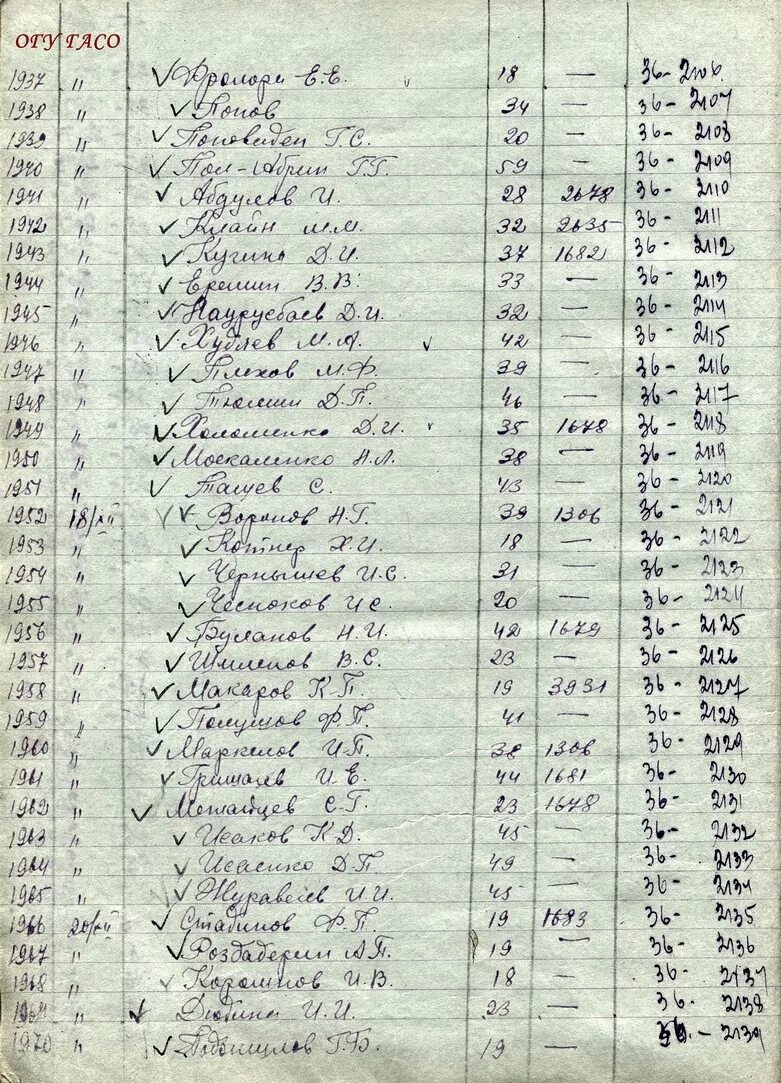 ОГУ ГАСО
1937 " Фролори Е.Е. 18 — 36-2106.
1938 " Попов 34 — 36-2107
1939 " Поповиден Г.С. 20 — 36-2108
1940 " Пол- Г.Г. 59 — 36-2109
1941 " Абдулов И. 28 2678 36-2110
1942 " Клайн М.М. 32 2635 36-2111
1943 " Кугина Д.И. 37 1682 36-2112
1944 " Еремин В.В. 33 — 36-2113
1945 " Наурусбаев Д.И. 32 — 36-2114
1946 " М.А. 42 — 36-2115
1947 " Плехов М.Ф. 39 — 36-2116
1948 " Тюлин Д.П. 46 — 36-2117
1949 " Холоменко Д.И. 35 1678 36-2118
1950 " Москаленко Н.Л. 38 — 36-2119
1951 " Тащев С. 43 — 36-2120
1952 18/XII Воронов Н.Г. 39 1306 36-2121
1953 " Котнер Х.И. 18 — 36-2122
1954 " Чернышев И.С. 31 — 36-2123
1955 " Чесноков И.С. 20 — 36-2124
1956 " Буланов Н.И. 42 1679 36-2125
1957 " Шмленов В.С. 23 — 36-2126
1958 " Макаров К.П. 19 3931 36-2127
1959 " Полушов Ф.П. 41 — 36-2128
1960 " Маркелов И.П. 38 1306 36-2129
1961 " Гришаев И.Е. 44 1681 36-2130
1962 " С.Г. 23 1678 36-2131
1963 " Исаков К.Д. 45 — 36-2132
1964 " Исаенко Д.П. 49 — 36-2133
1965 " Журавлев И.И. 45 — 36-2134
1966 20/XII Стадинов Ф.П. 19 1683 36-2135
1967 " Роздаберин А.П. 19 — 36-2136
1968 " И.В. 18 — 36-2137
1969 " Дюбина И.И. 23 — 36-2138
1970 " Г.Б. 19 — 36-2139